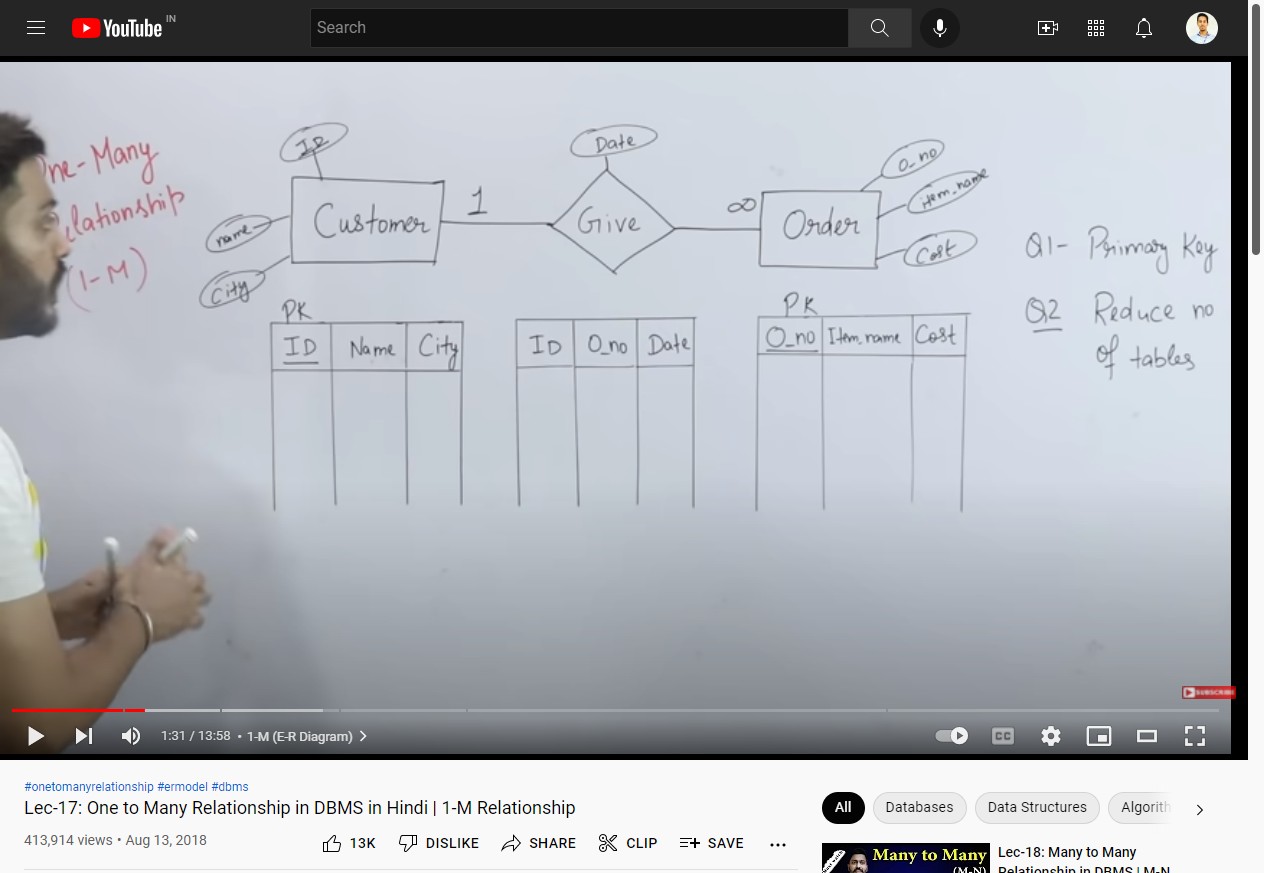 YouTube IN
Search
One-Many
Relationship
(1-M)
ID
name
City
Customer
1
Date
Give
∞
Order
O_no
item_name
Cost
Q1- Primary Key
Q2 Reduce no
of tables
PK
ID Name City
ID O_no Date
PK
O_no Item_name Cost
SUBSCRIBE
1:31 / 13:58 • 1-M (E-R Diagram)
CC
#onetomanyrelationship #ermodel #dbms
Lec-17: One to Many Relationship in DBMS in Hindi | 1-M Relationship
413,914 views • Aug 13, 2018
13K DISLIKE SHARE CLIP SAVE
All Databases Data Structures Algorith
Many to Many
(M-N)
Lec-18: Many to Many
Relationship in DBMS | M-N